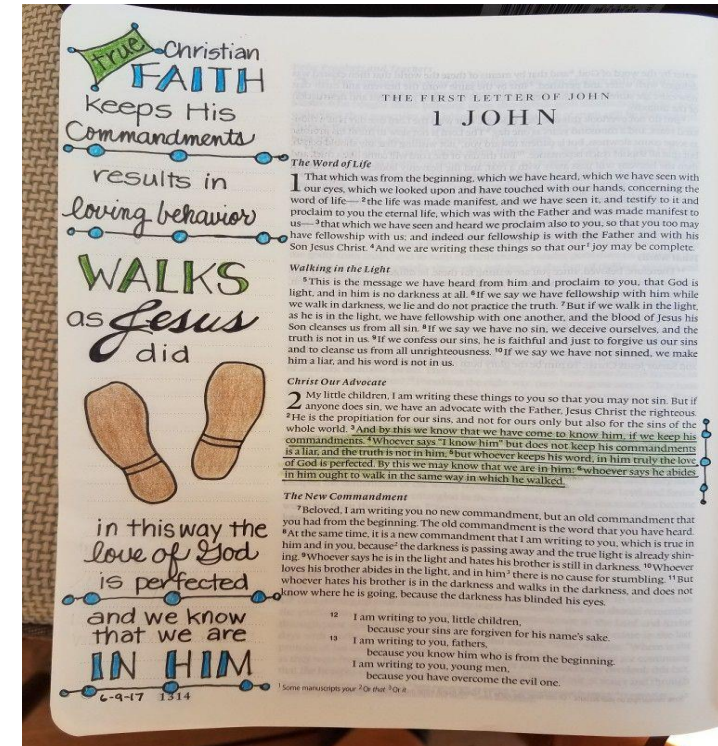 true Christian
FAITH
keeps His
Commandments
results in
loving behavior
WALKS
as Jesus
did
in this way the
love of God
is perfected
and we know
that we are
IN HIM
6-9-17 1314
THE FIRST LETTER OF JOHN
1 JOHN
The Word of Life
1 That which was from the beginning, which we have heard, which we have seen with
our eyes, which we looked upon and have touched with our hands, concerning the
word of life— 2 the life was made manifest, and we have seen it, and testify to it and
proclaim to you the eternal life, which was with the Father and was made manifest to
us— 3 that which we have seen and heard we proclaim also to you, so that you too may
have fellowship with us; and indeed our fellowship is with the Father and with his
Son Jesus Christ. 4 And we are writing these things so that our 1 joy may be complete.
Walking in the Light
5 This is the message we have heard from him and proclaim to you, that God is
light, and in him is no darkness at all. 6 If we say we have fellowship with him while
we walk in darkness, we lie and do not practice the truth. 7 But if we walk in the light,
as he is in the light, we have fellowship with one another, and the blood of Jesus his
Son cleanses us from all sin. 8 If we say we have no sin, we deceive ourselves, and the
truth is not in us. 9 If we confess our sins, he is faithful and just to forgive us our sins
and to cleanse us from all unrighteousness. 10 If we say we have not sinned, we make
him a liar, and his word is not in us.
Christ Our Advocate
2 My little children, I am writing these things to you so that you may not sin. But if
anyone does sin, we have an advocate with the Father, Jesus Christ the righteous.
2 He is the propitiation for our sins, and not for ours only but also for the sins of the
whole world. 3 And by this we know that we have come to know him, if we keep his
commandments. 4 Whoever says "I know him" but does not keep his commandments
is a liar, and the truth is not in him, 5 but whoever keeps his word, in him truly the love
of God is perfected. By this we may know that we are in him: 6 whoever says he abides
in him ought to walk in the same way in which he walked.
The New Commandment
7 Beloved, I am writing you no new commandment, but an old commandment that
you had from the beginning. The old commandment is the word that you have heard.
8 At the same time, it is a new commandment that I am writing to you, which is true in
him and in you, because 2 the darkness is passing away and the true light is already shin-
ing. 9 Whoever says he is in the light and hates his brother is still in darkness. 10 Whoever
loves his brother abides in the light, and in him 3 there is no cause for stumbling. 11 But
whoever hates his brother is in the darkness and walks in the darkness, and does not
know where he is going, because the darkness has blinded his eyes.
12 I am writing to you, little children,
because your sins are forgiven for his name's sake.
13 I am writing to you, fathers,
because you know him who is from the beginning.
I am writing to you, young men,
because you have overcome the evil one.
1 Some manuscripts your 2 Or that 3 Or it